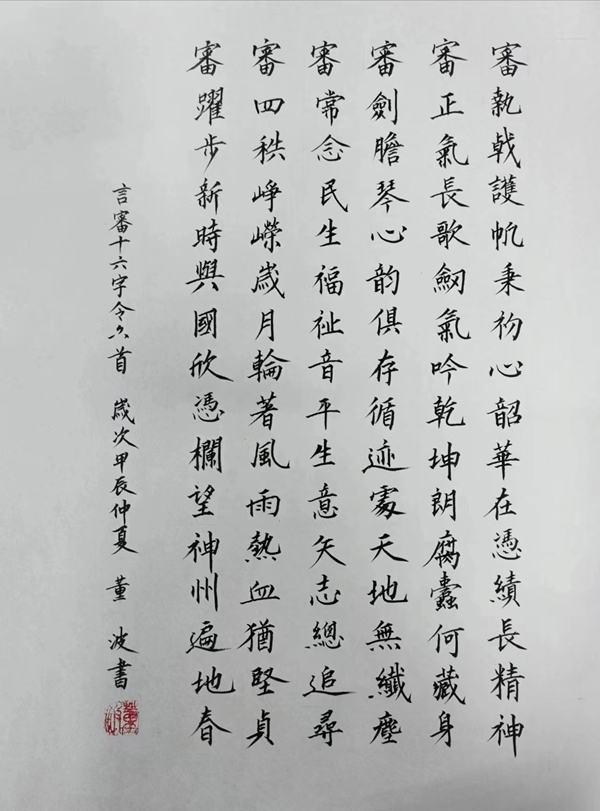 審執戟護帆秉初心韶華在憑績長精神
審正氣長歌劒氣吟乾坤朗腐蠹何藏身
審劍膽琴心韵俱存循迹處天地無纖塵
審常念民生福祉音平生意矢志總追尋
審四秩崢嶸歲月輪著風雨熱血猶堅貞
審躍步新時與國欣憑欄望神州遍地春
言審十六字令六首 歲次甲辰仲夏 董波書